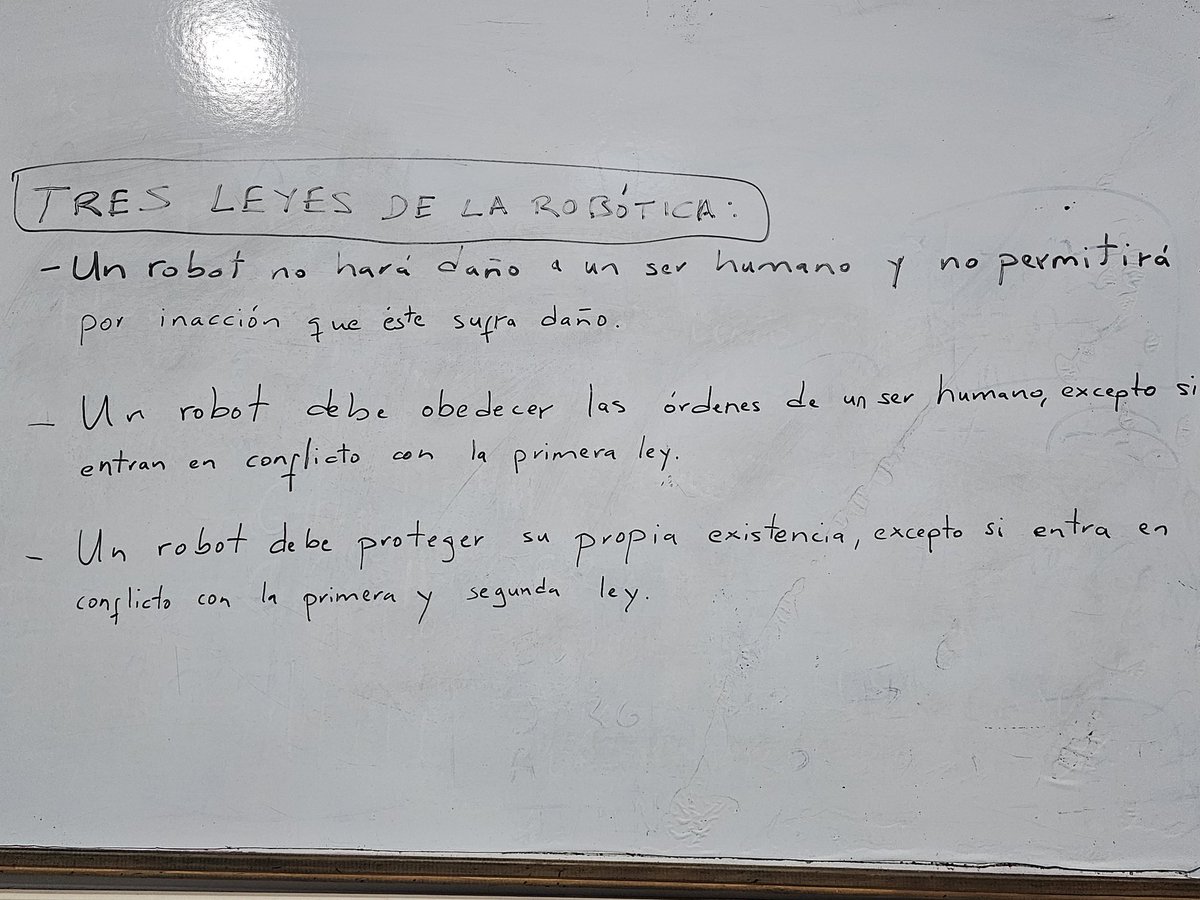 TRES LEYES DE LA ROBÓTICA:
- Un robot no hará daño a un ser humano y no permitirá
por inacción que éste sufra daño.
- Un robot debe obedecer las órdenes de un ser humano, excepto si
entran en conflicto con la primera ley.
- Un robot debe proteger su propia existencia, excepto si entra en
conflicto con la primera y segunda ley.